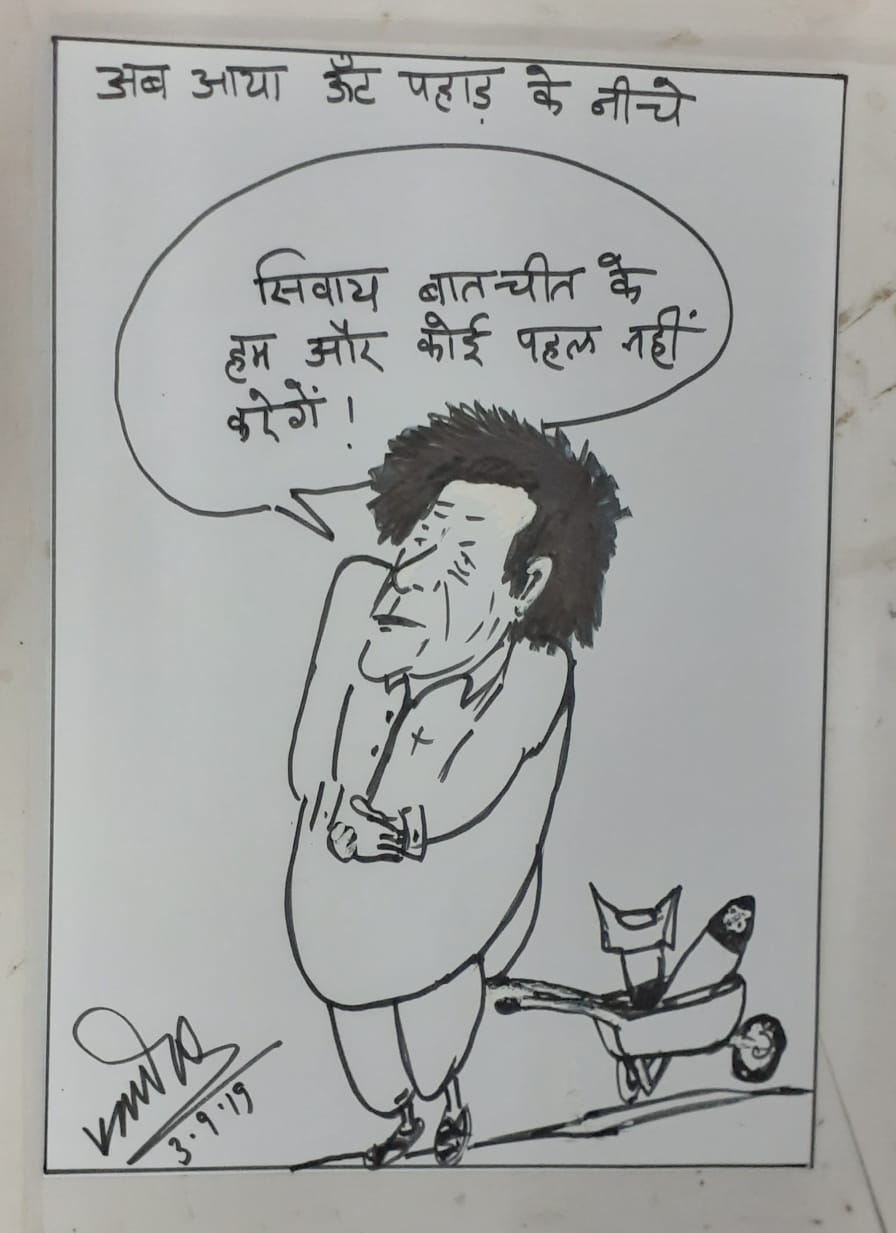 अब आया ऊँट पहाड़ के नीचे
सिवाय बातचीत के
हम और कोई पहल नहीं
करेगें!
3.9.19